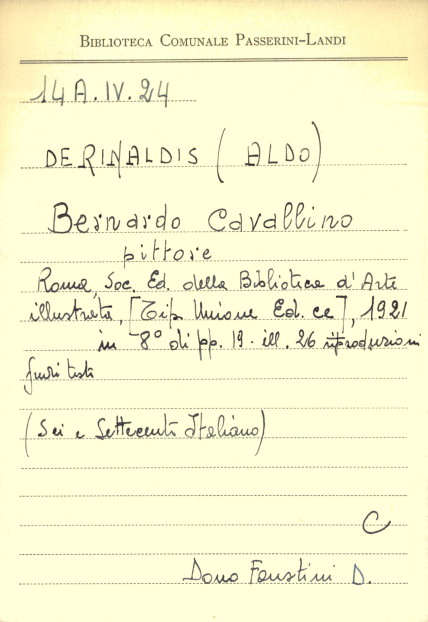 BIBLIOTECA COMUNALE PASSERINI-LANDI
14A.IV.24
DERINALDIS (ALDO)
Bernardo Cavallino
pittore
Roma, Soc. Ed. della Biblioteca d'Arte
illustrata, [Tip. Unione Ed. ce], 1921
in 8° di pp. 19 - ill. 26 riproduzioni
fuori testo
(Sei e Settecento Italiano)
C
Dono Faustini D.